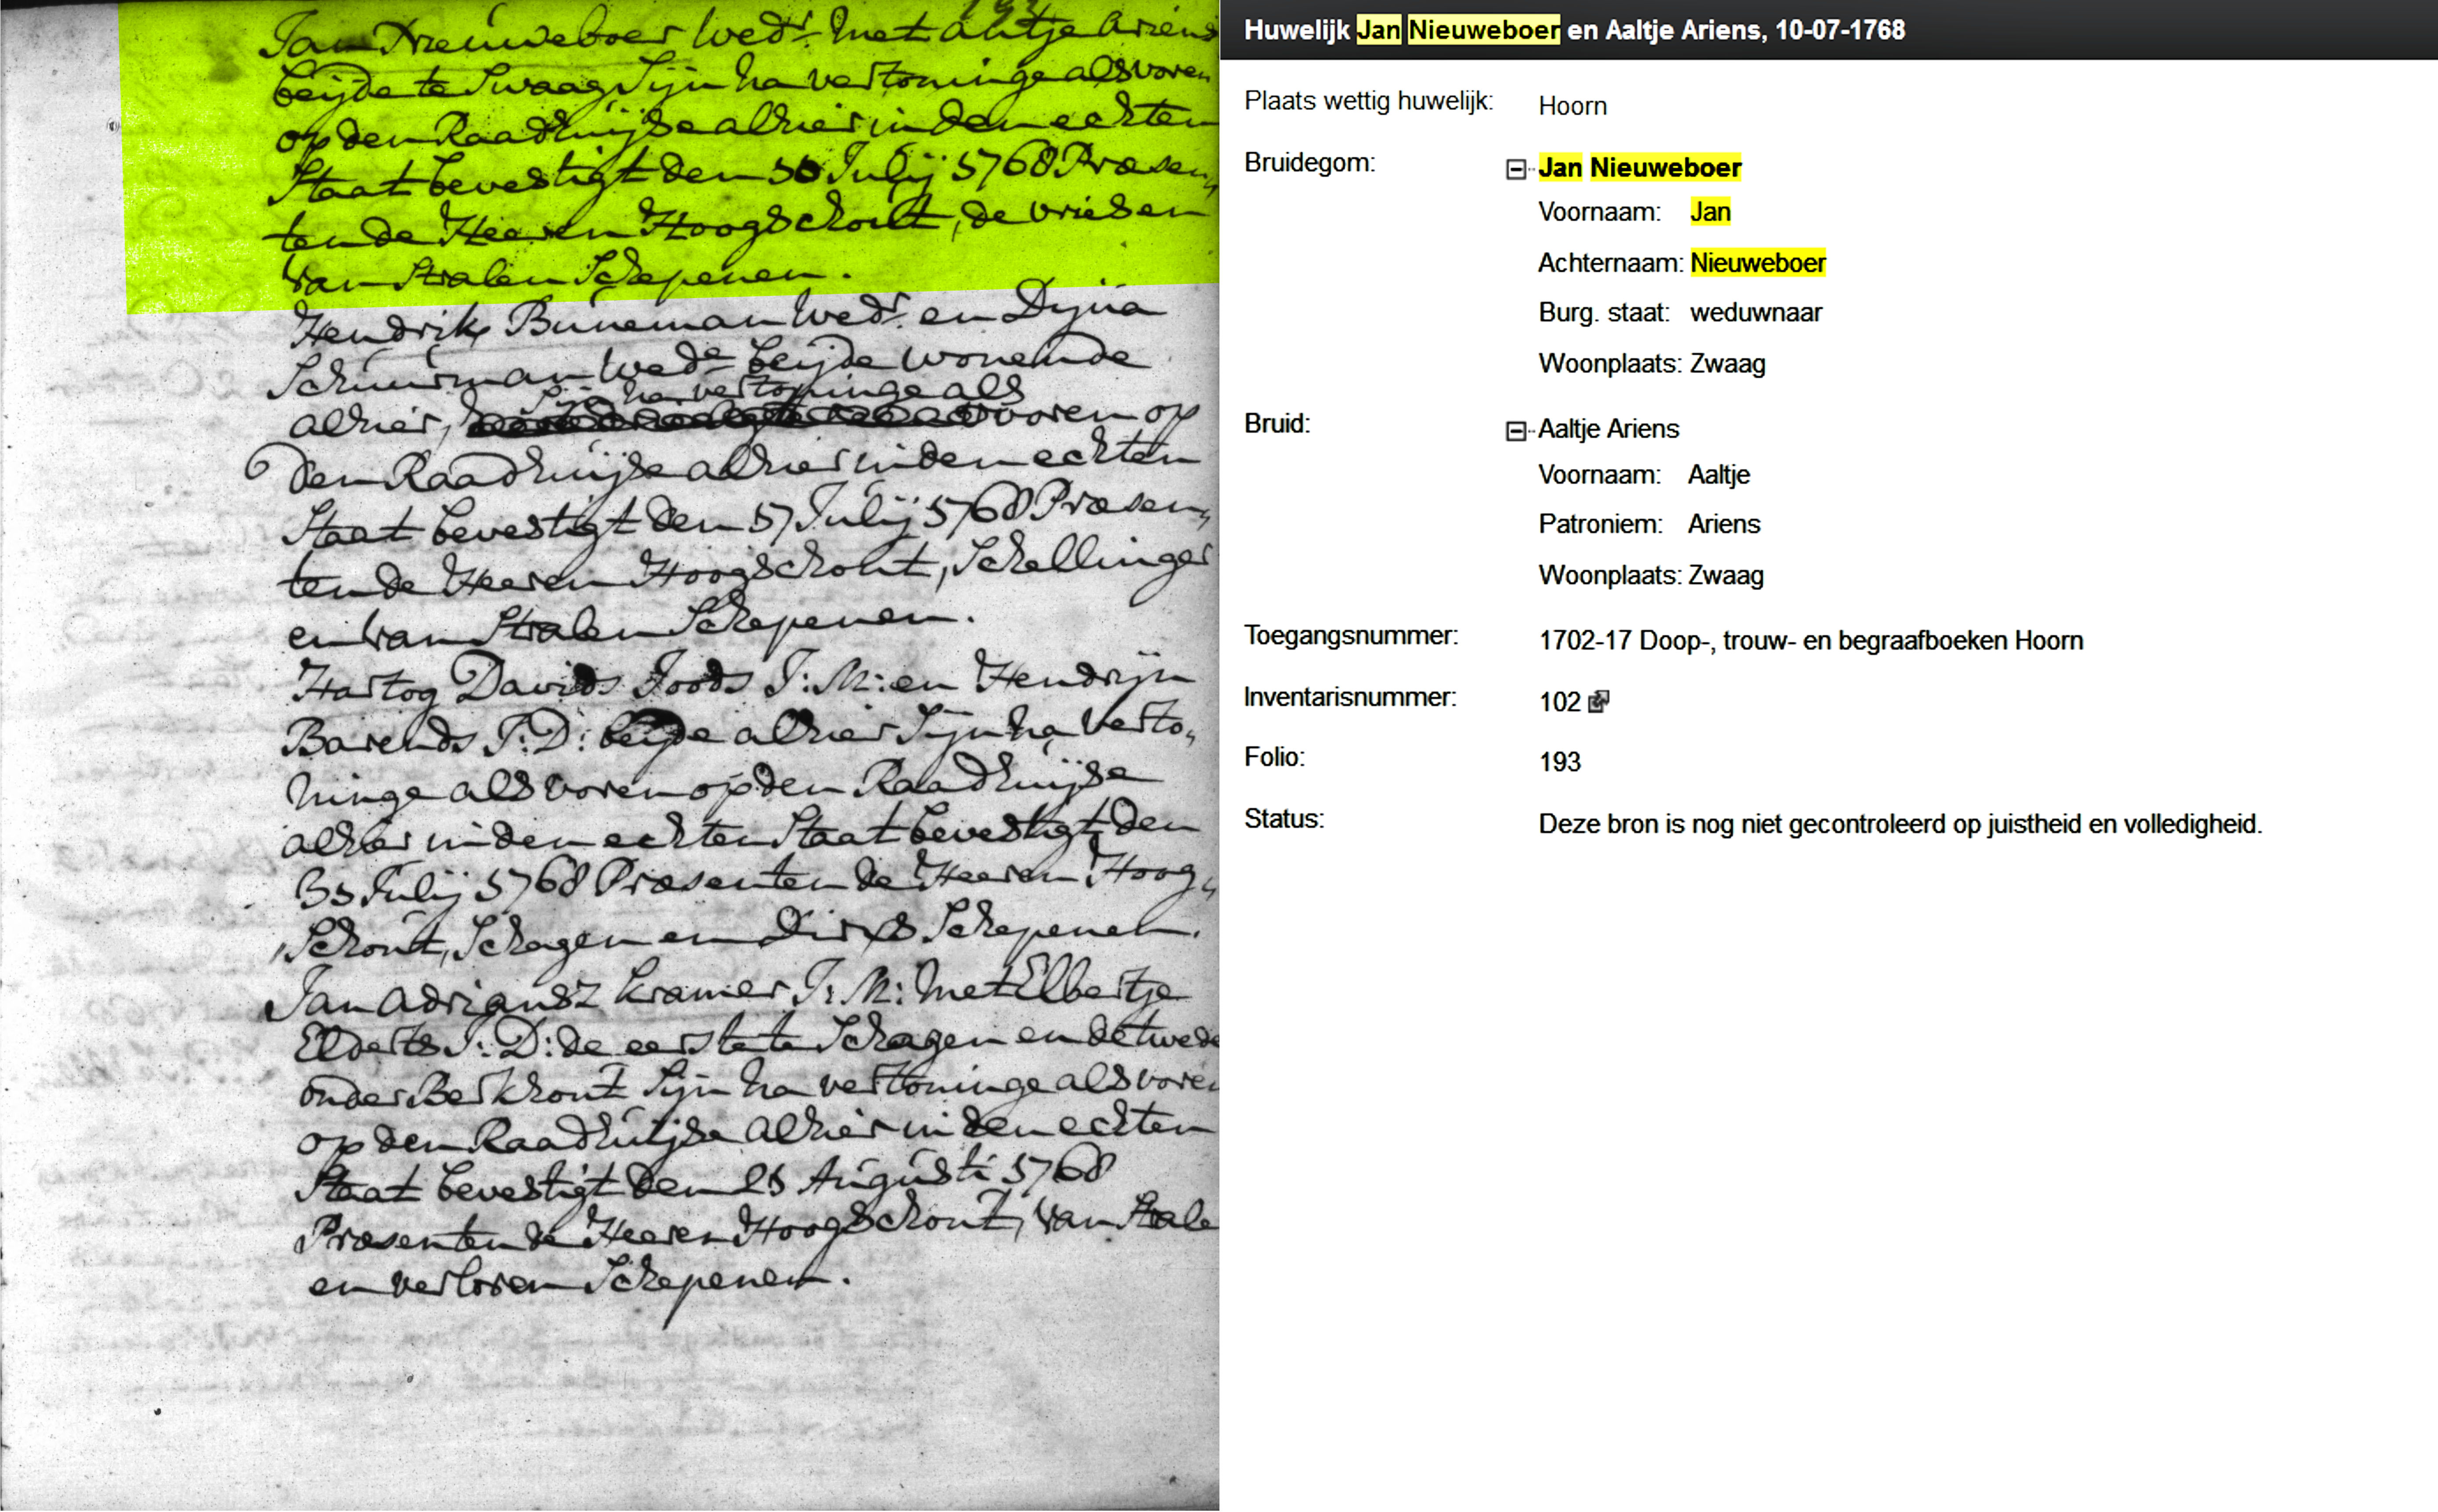 193
Jan Nieuweboer wedr. met Aaltje Ariens
beijde te Swaag Sijn na vertoninge als voren
op den Raadhuijse alhier in den echten
Staat bevestigt den 10 Julij 1768 Præsen„
ten de Heeren Hoogschout, de vries en
van Stralen Schepenen.
Hendrik Buneman wedr. en Dyna
Schuurman wede. beijde wonende
Sijn na vertoninge als
alhier, voren op
den Raadhuijse alhier in den echten
Staat bevestigt den 17 Julij 1768 Præsen„
ten de Heeren Hoogschout, Schellinger
en van Stralen Schepenen.
Hartog Davids Joods J:M: en Hendrijn
Barends J:D: beijde alhier Sijn na verto„
ninge als voren op den Raadhuijse
alhier in den echten Staat bevestigt den
31 Julij 1768 Præsenten de Heeren Hoog„
„Schout, Schagen en Dirx Schepenen.
Jan Adriansz Kramer J:M: met Elbertje
Elderts J:D: de eerste te Schagen en de twede
onder Berkhout Sijn na vertoninge als voren
op den Raadhuijse alhier in den echten
Staat bevestigt den 21 Augusti 1768
Præsenten de Heeren Hoogschout, van Strale
en verloren Schepenen.
Huwelijk Jan Nieuweboer en Aaltje Ariens, 10-07-1768
Plaats wettig huwelijk: Hoorn
Bruidegom: Jan Nieuweboer
Voornaam: Jan
Achternaam: Nieuweboer
Burg. staat: weduwnaar
Woonplaats: Zwaag
Bruid: Aaltje Ariens
Voornaam: Aaltje
Patroniem: Ariens
Woonplaats: Zwaag
Toegangsnummer: 1702-17 Doop-, trouw- en begraafboeken Hoorn
Inventarisnummer: 102
Folio: 193
Status: Deze bron is nog niet gecontroleerd op juistheid en volledigheid.